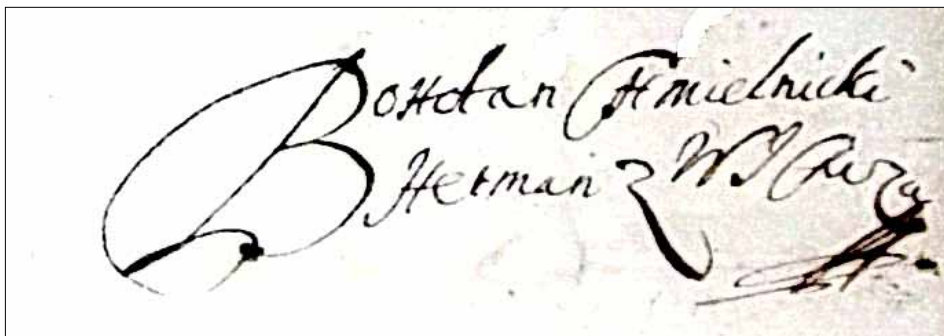 Bohdan Chmielnicki
Hetman z Woÿ